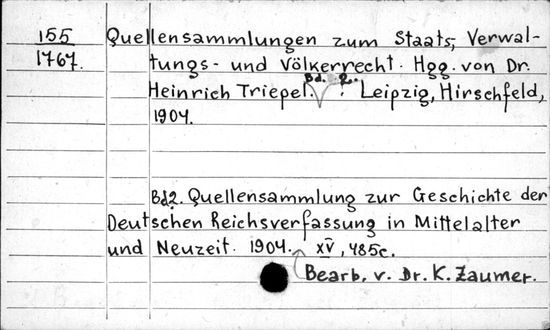 155
1767.
Quellensammlungen zum Staats-, Verwal-
tungs- und Völkerrecht. Hgg. von Dr.
Bd. 2..
Heinrich Triepel. Leipzig, Hirschfeld,
1904.
Bd2. Quellensammlung zur Geschichte der
Deutschen Reichsverfassung in Mittelalter
und Neuzeit. 1904. XV, 485c.
Bearb. v. Dr. K. Zaumer.